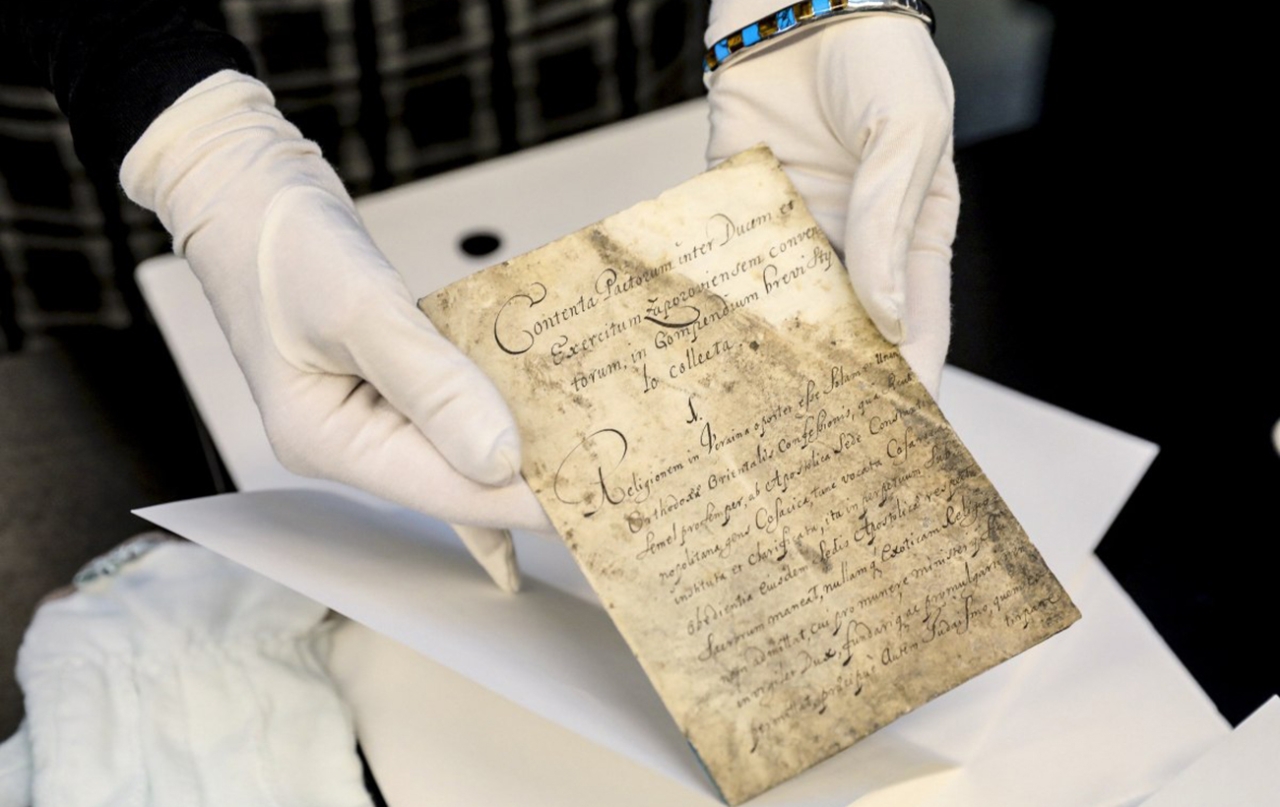 Contenta Pactorum inter Ducem et
Exercitum Zaporoviensem conven
torum, in Compendium brevi Sty
lo collecta.
1.
Religionem in Vcraina oportet esse Solam Unam
Orthodoxæ Orientalis Confessionis, quæ
semel pro semper, ab Apostolica Sede Constanti
nopolitana, gens Cosacica tunc vocata
instituta et clarificata, ita in perpetuum sub
obedientia eiusdem Sedis Apostolicæ
maneat, nullamq Exoticam Religio
nem admittat, cui pro munere
Dux, fundariq ac promulgari
præcipuè Autem Judaismo, quom